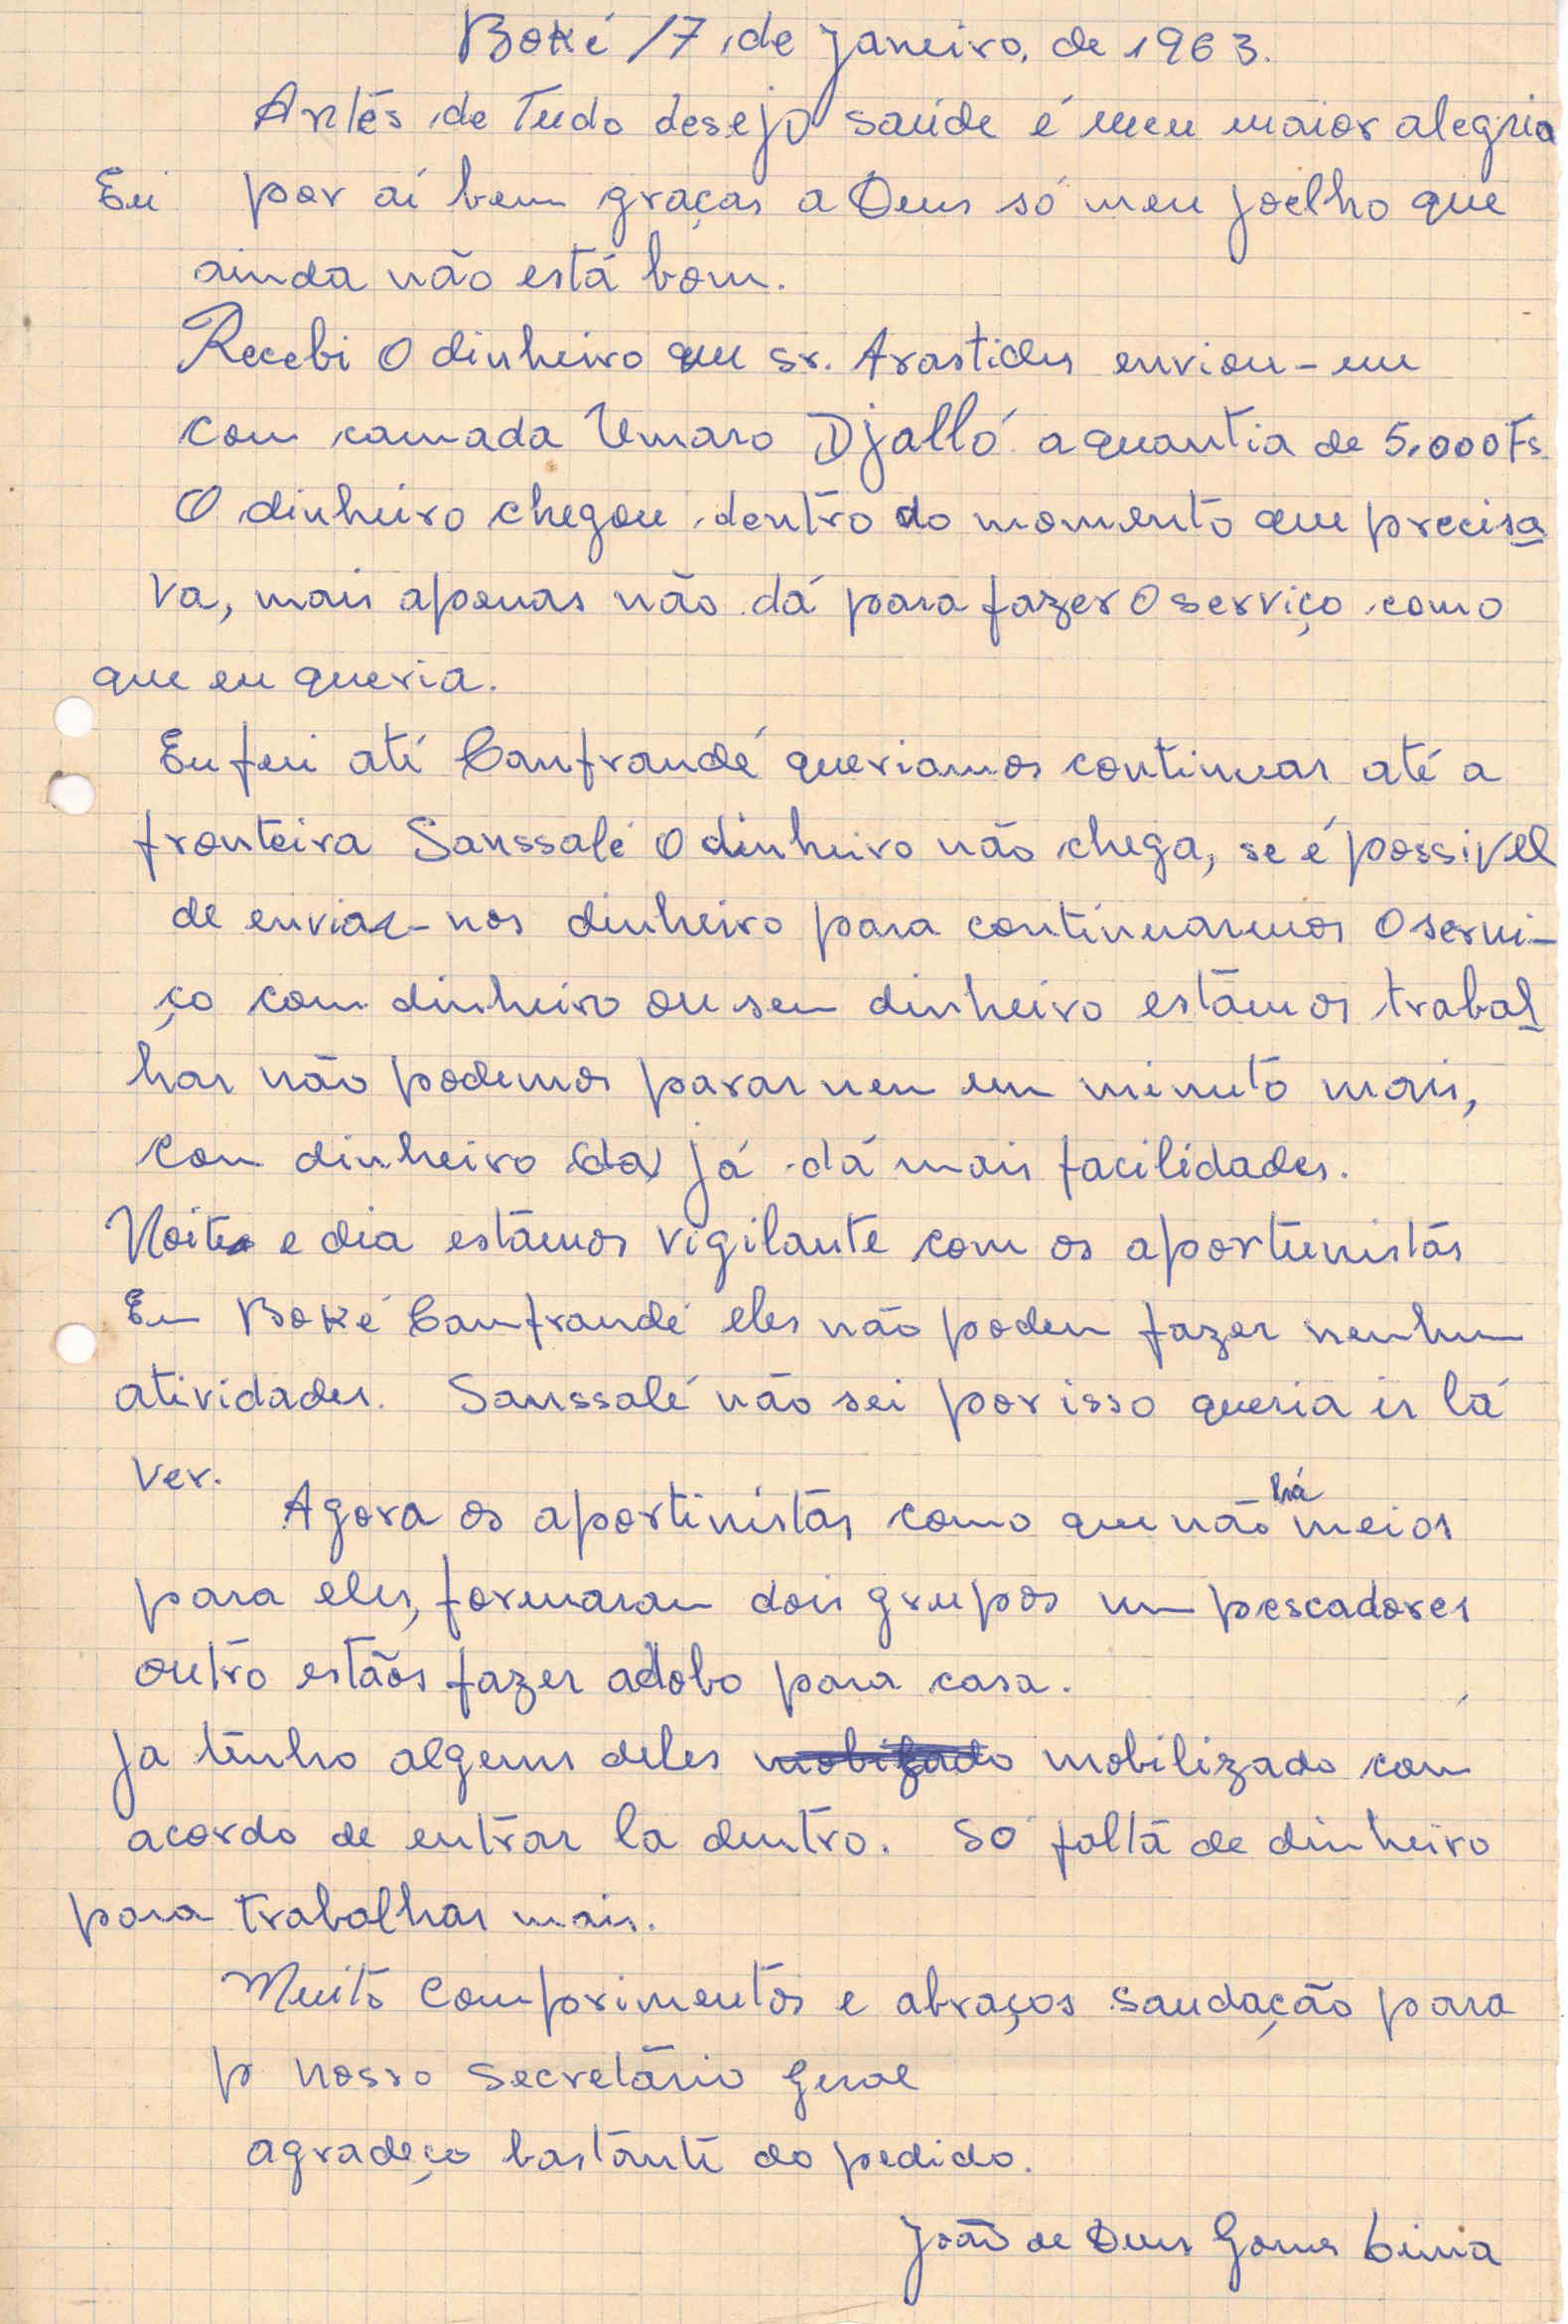 Boké 17 de Janeiro, de 1963.
Antés de Tudo desejo saúde é meu maior alegria
Eu por aí bem graças a Deus só meu joelho que
ainda não está bom.
Recebi o dinheiro que sr. Arastides enviou-me
com camada Umaro Djalló a quantia de 5.000 Fs
O dinheiro chegou dentro do momento que precisa
va, mais apenas não dá para fazer o serviço como
que eu queria.
Eu fui até Canfrandé queriamos continuar até a
fronteira Sanssalé o dinheiro não chega, se é possivel
de enviar-nos dinheiro para continuarmos o servi-
ço com dinheiro ou sen dinheiro estámos trabal
har não podemos parar nen um minuto mais,
con dinheiro (da) já dá mais facilidades.
Noite e dia estámos vigilante com os aportunistás
En Boké Canfrandé eles não poden fazer nenhum
atividades. Sanssalé não sei por isso queria ir lá
ver.
Agora os aportinistás como que não há meios
para eles, formaran dois grupos um pescadores
outro estãos fazer adobo para casa.
Ja tenho alguns deles mobilizado con
acordo de entrar la dentro. Só faltá de dinheiro
para trabalhar mais.
Muito comporimentos e abraços saudação para
p nosso secretário geral
agradeço bastante do pedido.
João de Deus Gomes